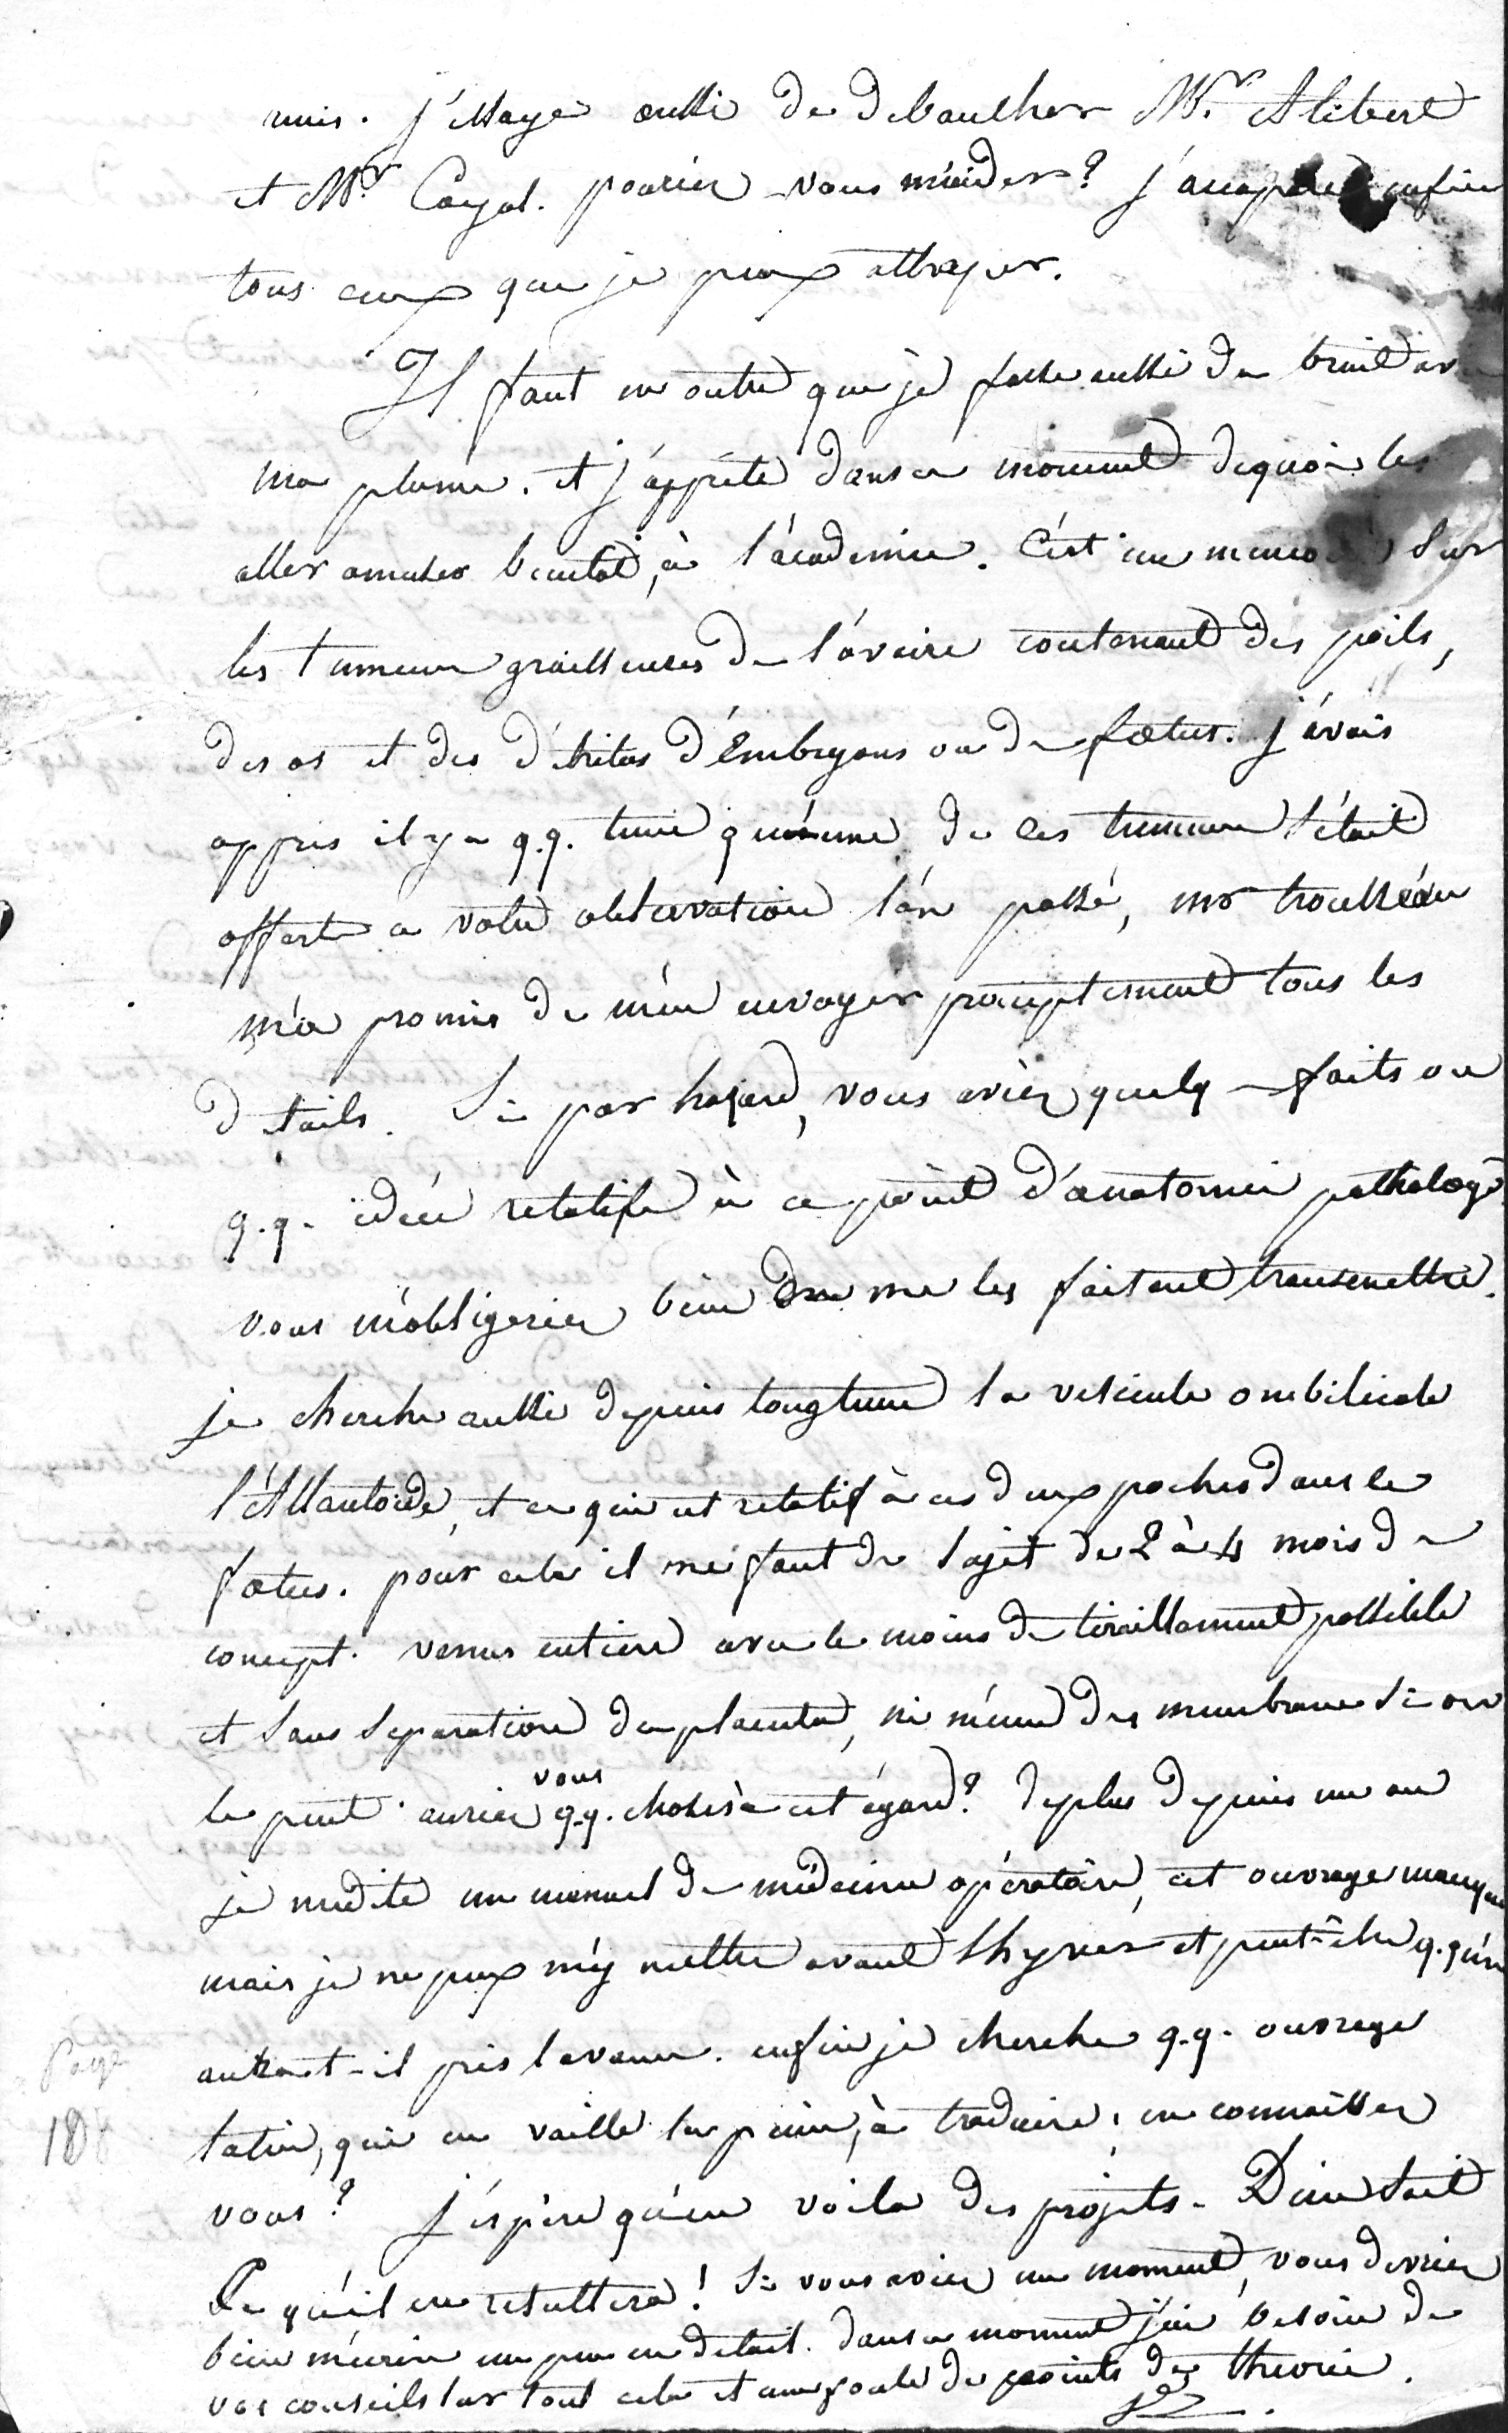 mis. j'essaye aussi de debaucher Mr. Alibert
et Mr Cayol. pouriez-vous m'aider? j'accapare enfin
tous ceux que je peux attraper.
Il faut en outre que je fasse aussi du bruit avec
ma plume. et j'apprête dans ce moment dequoi les
aller amuser bientot, à l'académie. C'est un memoire sur
les tumeurs graisseuses de l'ovaire contenant des poils,
des os et des détritus d'Embryons ou de foetus. j'avais
appris il y a q.q. tems qu'une de ces tumeurs s'était
offerte a votre observation l'an passé, mr trousseau
m'a promis de m'en envoyer promptement tous les
details. Si par hazard, vous aviez quelq faits ou
q.q. idées relatifs à ce point d'anatomie pathologq
vous m'obligeriez bien en me les faisant transmettre.
je cherche aussi depuis longtems la vesicule ombilicale
l'Allantoïde, et ce qui est relatif à ces deux poches dans le
foetus. pour cela il me faut de sujet de 2 à 4 mois de
concept. venus entiers avec le moins de tiraillement possible
et sans separation du placenta, ni même des membranes si on
le peut. auriez vous q.q. choses à cet égard? deplus depuis un an
je medite un manuel de médecine opératoire, cet ouvrage manque
mais je ne peux m'y mettre avant l'hyver et peut-être q.qu'un
aura t-il pris l'avance. enfin je cherche q.q. ouvrage
latin, qui en vaille la peine, à traduire, en connaissez
vous? j'espère qu'en voila des projets. Dieu sait
Ce qu'il en resultera! Si vous aviez un moment, vous devriez
bien m'ecrire un peu en detail. dans ce moment j'ai besoin de
vos conseils sur tout cela et une foule de points de theorie.
Page
18